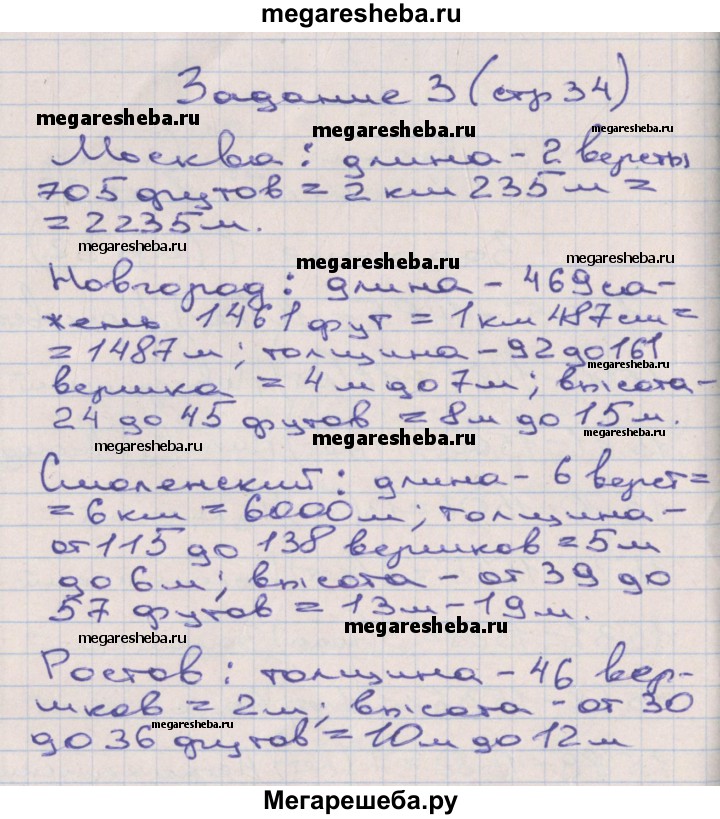 megaresheba.ru
Задание 3 (стр 34)
megaresheba.ru megaresheba.ru megaresheba.ru
Москва: длина - 2 версты
705 футов = 2 км 235 м =
= 2235 м.
megaresheba.ru megaresheba.ru megaresheba.ru
Новгород: длина - 469 са-
жень 1461 фут = 1 км 487 см =
= 1487 м; толщина - 92 до 161
megaresheba.ru
вершка = 4 м до 7 м; высота -
megaresheba.ru
24 до 45 футов = 8 м до 15 м.
megaresheba.ru megaresheba.ru megaresheba.ru
Смоленский: длина - 6 верст =
= 6 км = 6000 м; толщина -
от 115 до 138 вершков = 5 м
до 6 м; высота - от 39 до
57 футов = 13 м - 19 м.
megaresheba.ru megaresheba.ru
Ростов: толщина - 46 вер-
шков = 2 м; высота - от 30
megaresheba.ru
до 36 футов = 10 м до 12 м
Мегарешеба.ру